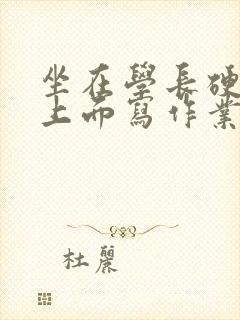 坐在學長硬
上而寫作業
杜麗